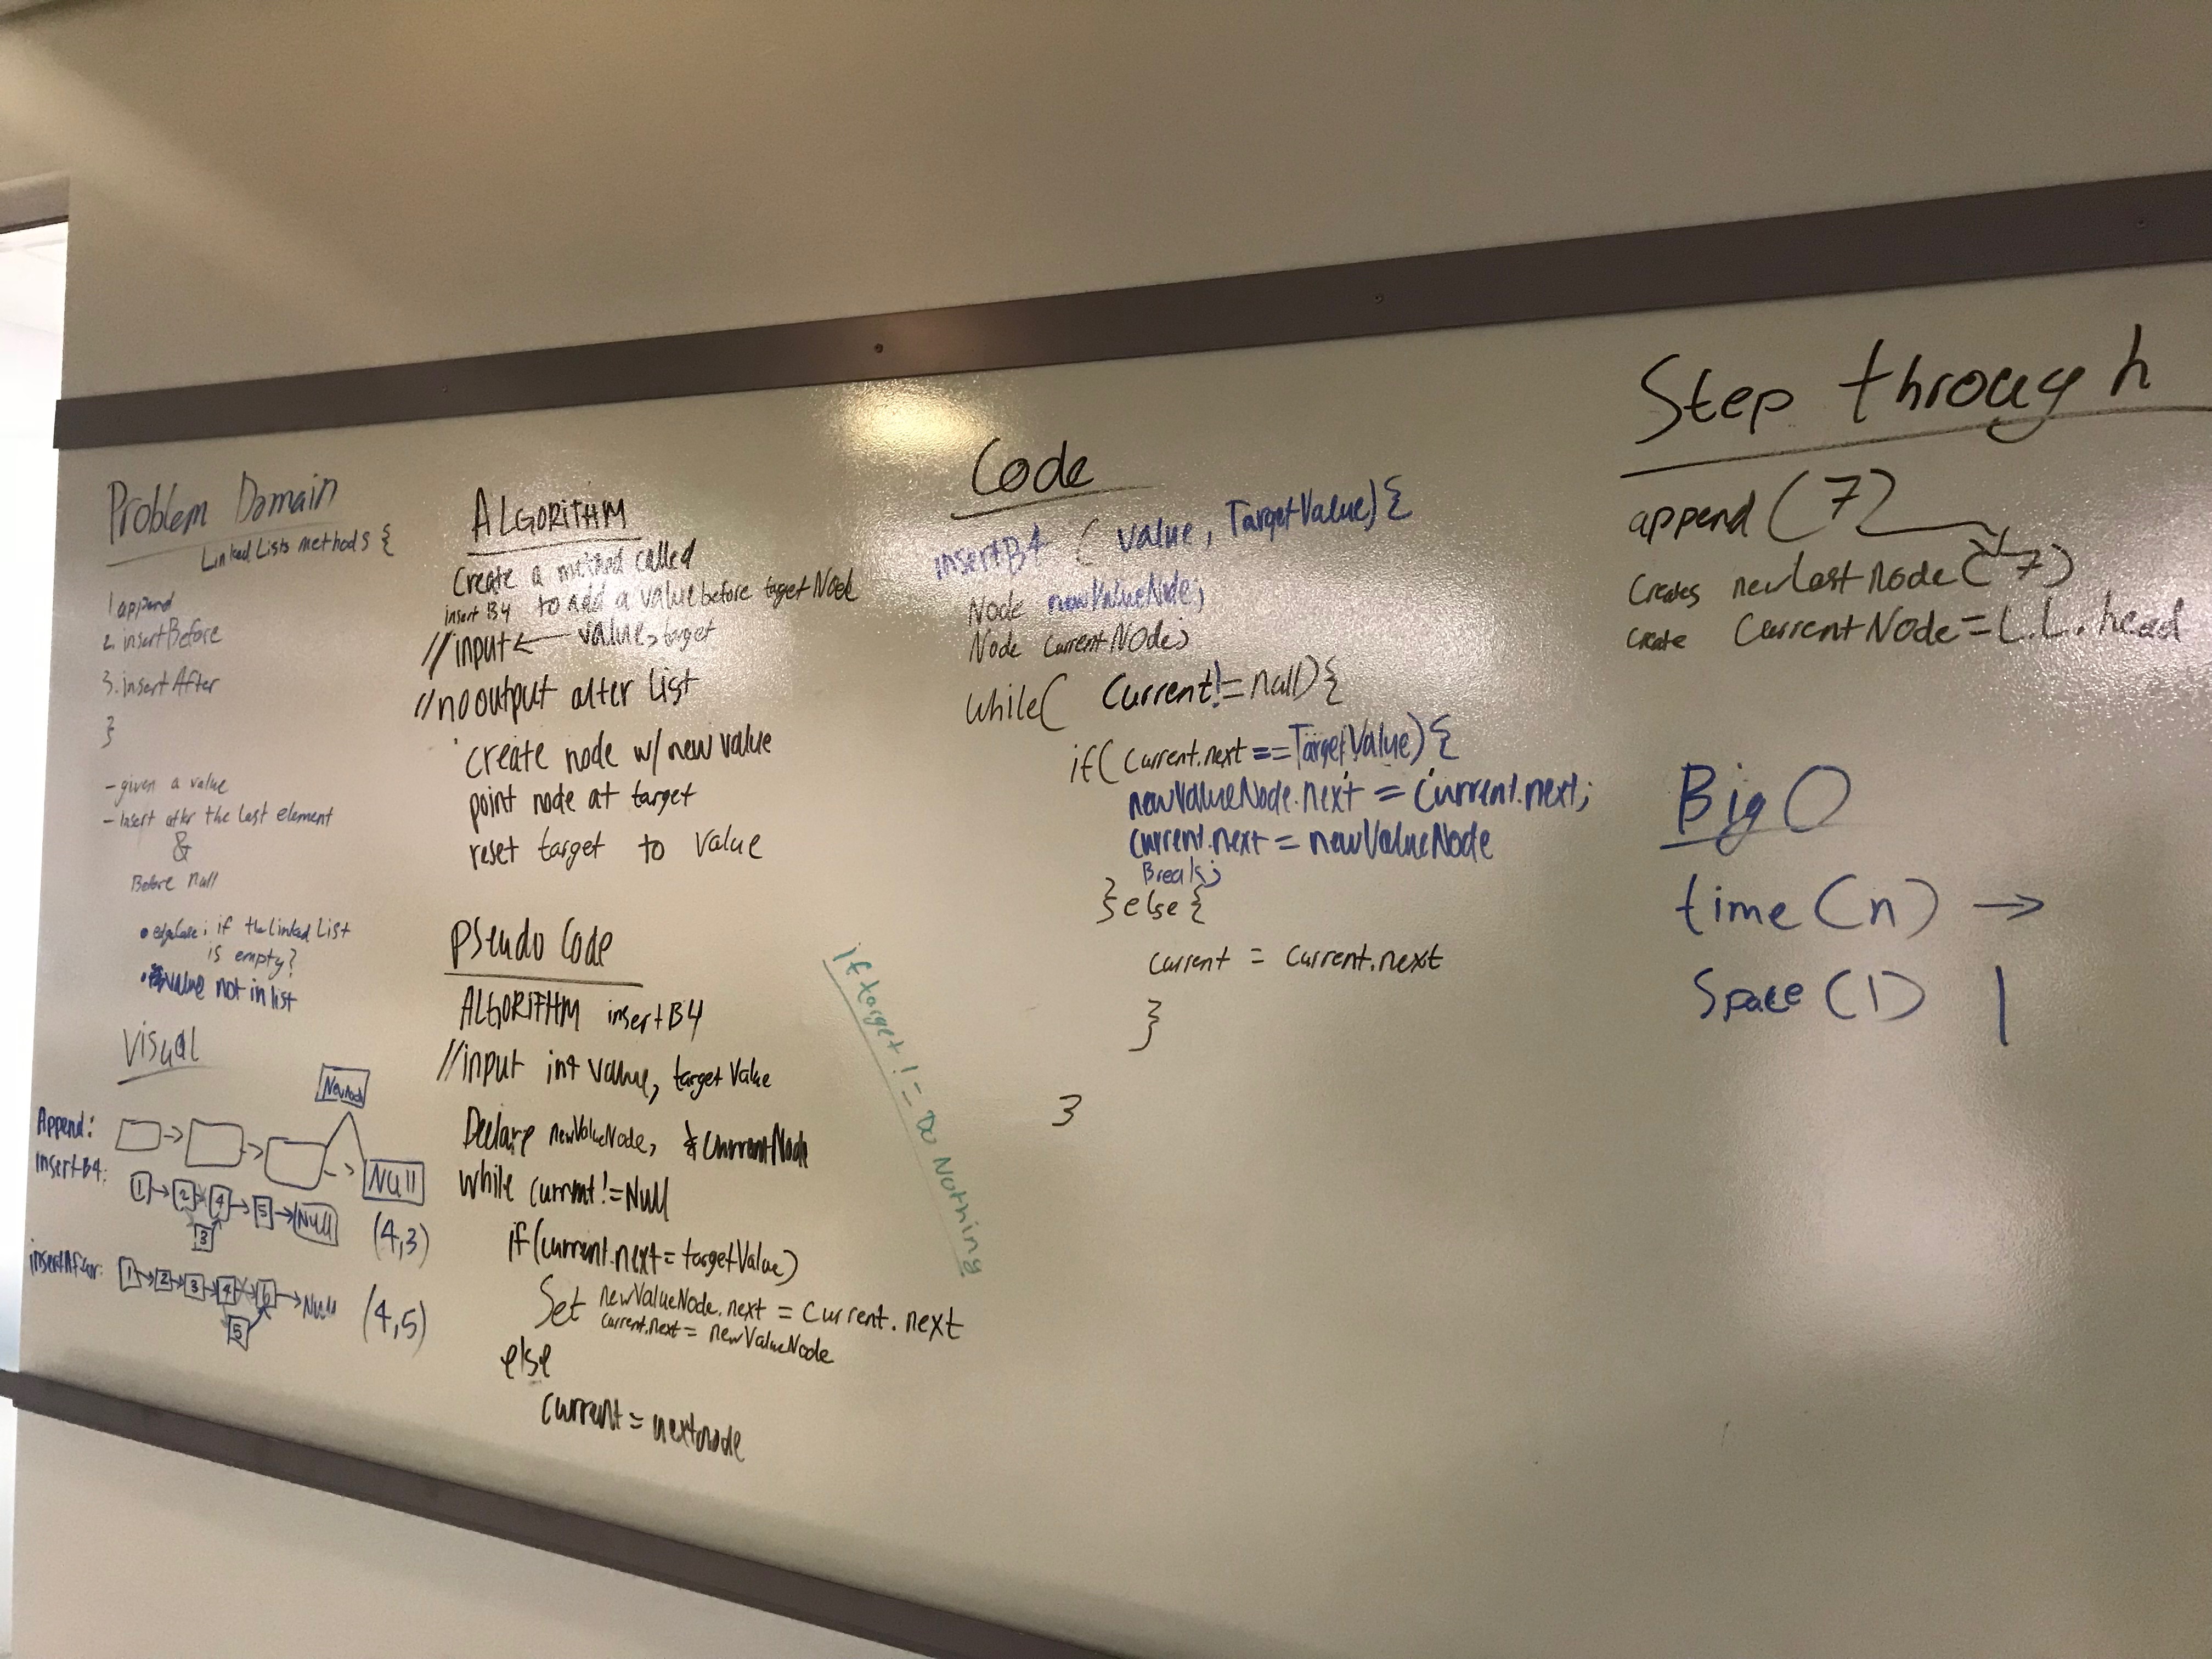 Problem Domain
Linked Lists methods {
1 append
2. insertBefore
3. insertAfter
}
- given a value
- insert after the last element
&
Before null
• edgeCase: if the Linked List
is empty?
• value not in list
Visual
New node
Append:
Null
insertB4:
1 → 2 4 → 5 → Null
3
(4,3)
insertAfter:
1 → 2 → 3 → 4 → 6 → Null
5
(4,5)
ALGORITHM
Create a method called
insert B4 to add a value before target Node
//input ← value, target
//no output alter List
create node w/ new value
point node at target
reset target to value
Pseudo Code
ALGORITHM insertB4
//input int value, target Value
Declare newValueNode, & CurrentNode
while current != Null
if (current.next = targetValue)
Set newValueNode.next = Current.next
current.next = newValueNode
else
current = nextnode
if target != Do Nothing
Code
insertB4 ( value, TargetValue) {
Node newValueNode;
Node currentNode;
while( Current != null) {
if( Current.next == TargetValue) {
newValueNode.next = Current.next;
Current.next = newValueNode
Break;
} else {
current = Current.next
}
}
Step through
append (7)
Creates newLastNode (7)
Create CurrentNode = L.L. head
Big O
time (n) →
Space (1) |